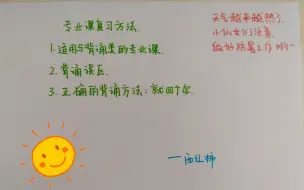 专业课复习方法.
1.适用与背诵类的专业课.
2.背诵误区.
3.正确的背诵方法:就四个字.
天气越来越热了
小仙女们注意
做好防暑工作哟~